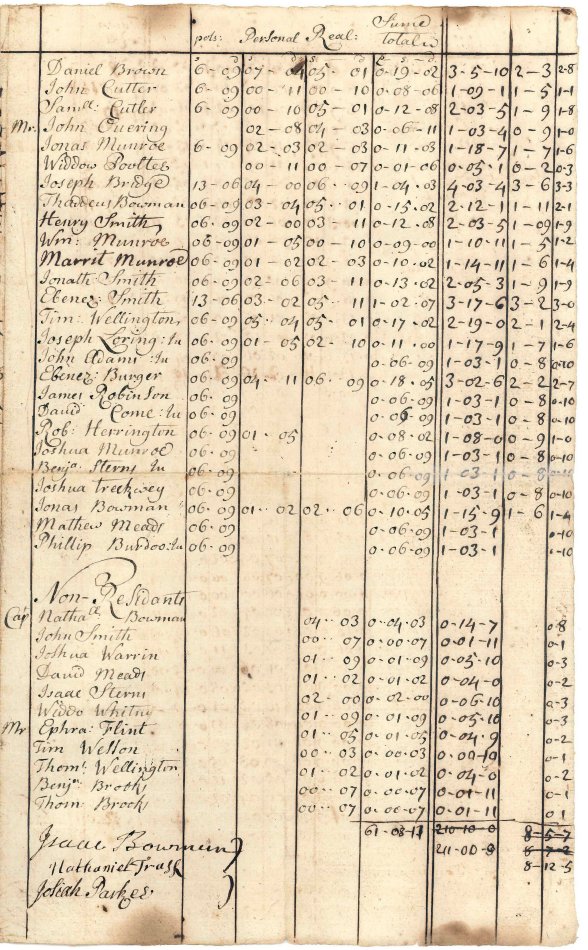 pols: Personal Real: Sume total
Daniel Brown 6-09 07-04 05-01 0-19-02 3-5-10 2-3 2-8
John Cutter 6-09 00-11 00-10 0-08-06 1-09-1 1-5 1-1
Samll Cutler 6-09 00-10 05-01 0-12-08 2-03-5 1-9 1-8
Mr. John 02-08 04-03 0-06-11 1-03-4 0-9 1-0
Jonas Munroe 6-09 02-03 02-03 0-11-03 1-18-7 1-7 1-6
Widdow Poulter 00-11 00-07 0-01-06 0-05-1 0-2 0-3
Joseph Bridge 13-06 04-00 06-09 1-04-03 4-03-4 3-6 3-3
Thaddeus Bowman 06-09 03-04 05-01 0-15-02 2-12-11 1-11 2-1
Henry Smith 06-09 02-00 03-11 0-12-08 2-03-5 1-09 1-9
Wm: Munroe 06-09 01-05 00-10 0-09-00 1-10-11 1-5 1-2
Marrit Munroe 06-09 01-02 02-03 0-10-02 1-14-11 1-6 1-4
Jonath Smith 06-09 02-06 03-11 0-13-02 2-05-3 1-9 1-9
Ebenez Smith 13-06 03-02 05-11 1-02-07 3-17-6 3-2 3-0
Tim: Wellington 06-09 05-04 05-01 0-17-02 2-19-0 2-1 2-4
Joseph Loring: Ju 06-09 01-05 02-10 0-11-00 1-17-9 1-7 1-6
John Adams: Ju 06-09 0-06-09 1-03-1 0-8 0-10
Ebenez: Burger 06-09 04-11 06-09 0-18-05 3-02-6 2-2 2-7
James Robinson 06-09 0-06-09 1-03-1 0-8 0-10
David Come: Ju 06-09 0-06-09 1-03-1 0-8 0-10
Rob: Herrington 06-09 01-05 0-08-02 1-08-0 0-9 1-0
Joshua Munroe 06-09 0-06-09 1-03-1 0-8 0-10
Benja Sterns Ju 06-09 0-06-09 1-03-1 0-8
Joshua 06-09 0-06-09 1-03-1 0-8 0-10
Jonas Bowman 06-09 01-02 02-06 0-10-05 1-15-9 1-6 1-4
Mathew Meads 06-09 0-06-09 1-03-1 0-10
Phillip Burdoo: Ju 06-09 0-06-09 1-03-1 0-10
Non-Residants
Cap Nathall Bowman 04-03 0-04-03 0-14-7 0-8
John Smith 00-07 0-00-07 0-01-11 0-1
Joshua Warrin 01-09 0-01-09 0-05-10 0-3
David Meads 01-02 0-01-02 0-04-0 0-2
Isaac Sterns 02-00 0-02-00 0-06-10 0-3
Widdo Whitny 01-09 0-01-09 0-05-10 0-3
Mr Ephra: Flint 01-05 0-01-05 0-04-9 0-2
Tim Wesson 00-03 0-00-03 0-00-10 0-1
Thom: Wellington 01-02 0-01-02 0-04-0 0-2
Benja Brooks 00-07 0-00-07 0-01-11 0-1
Thom Brooks 00-07 0-00-07 0-01-11 0 1
61-08-11 210-10-0 8-5-7
Isaac Bowman 211-00-9 8-7-2
Nathaniel Trask 8-12-5
Josiah Parker